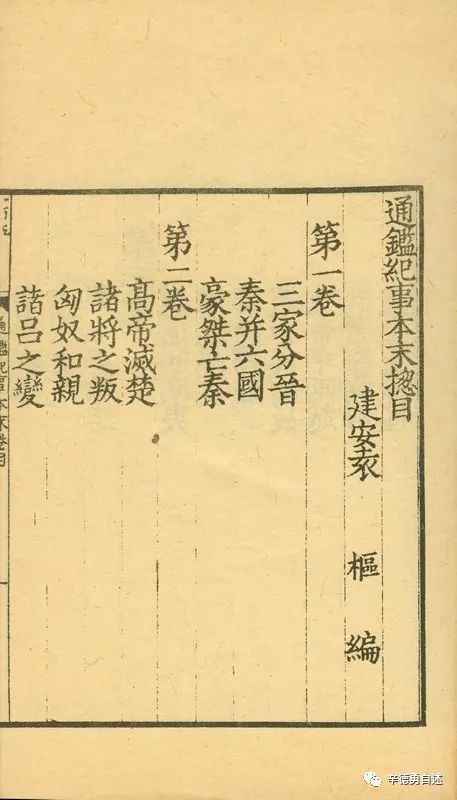 通鑑紀事本末揔目
建安袁 樞 編
第一卷
三家分晉
秦并六國
豪桀亡秦
第二卷
高帝滅楚
諸將之叛
匈奴和親
諸呂之變
通鑑紀事本末揔目
辛德勇自述